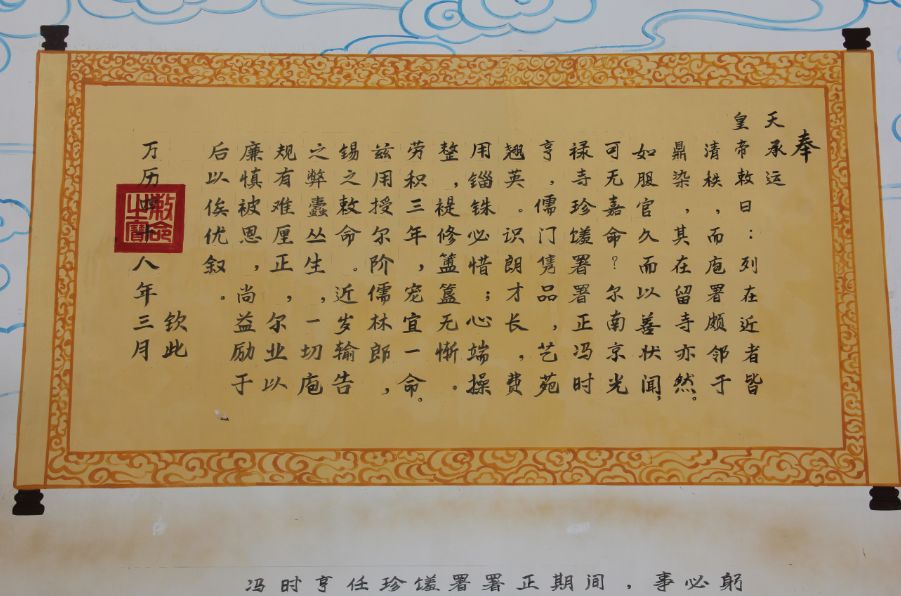 奉
天承运
皇帝敕曰：列在近者皆
清秩，而庖署颇邻于
鼎染，其在留寺亦然。
如服官久而以善状闻，
可无嘉命？尔南京光
禄寺珍馐署署正冯时
亨，儒门隽品，艺苑
翘英。识朗才长，费
用锱铢必惜；心端操
整，褆修簠簋无惭。
劳积三年，宠宜一命。
兹用授尔阶儒林郎，
锡之敕命。近岁输告
之弊蠹丛生，一切庖
规有难厘正，尔业以
廉慎被恩，尚益励于
后以俟优叙。
钦此
万历四十八年三月
敕命之宝
冯时亨任珍馐署署正期间，事必躬